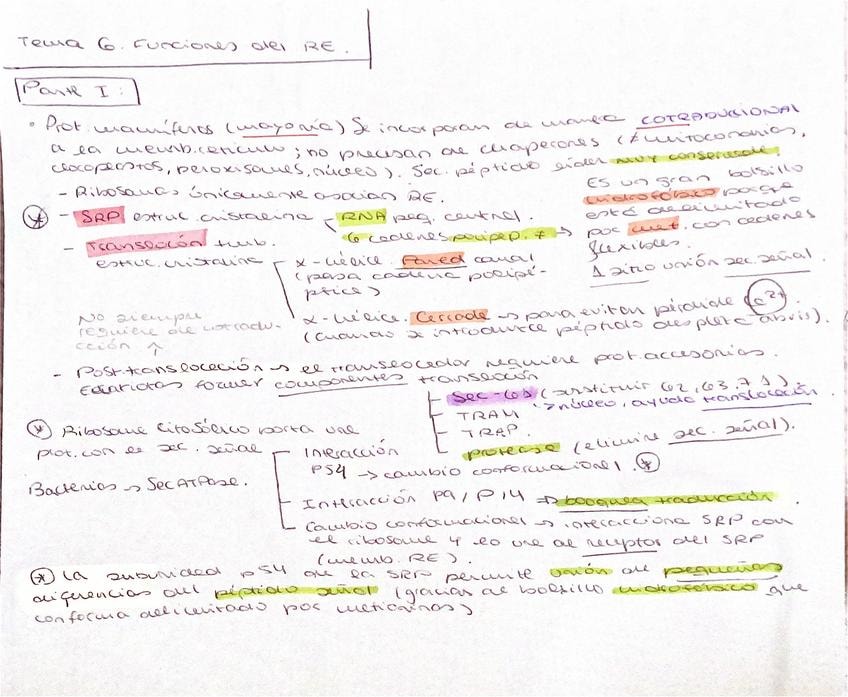 Tema 6. Funciones del RE.
Parte I:
• Prot. mamíferos (mayoría) se incorporan de manera COTRADUCIONAL
a la memb. retículo; no precisan de chaperones (≠ mitocondrias,
cloroplastos, peroxisomas, núcleo). Sec. péptido líder muy conservada.
- Ribosomas únicamente asocian RE.
* - SRP estruc. cristalina - RNA peq. central.
6 cadenas polipep. →
Es un gran bolsillo
hidrofóbico porque
está delimitado
por met. con cadenas
flexibles.
1 sitio unión sec. señal.
- Translocón tmb.
estruc. cristalina
α-hélice. Pared canal
(pasa cadena polipé-
ptica)
α-hélice. Cerrada → para evitar pérdida Ca2+
(cuando se introduce péptido desplaza abrir).
No siempre
requiere de cotradu-
cción ↑
- Post. translocación → el translocador requiere prot. accesorias.
Eucariotas forman componentes translocón
Sec-61 (sustituir 62, 63, 71).
↳ núcleo, ayuda translocación
TRAM
TRAP.
proteasa (elimine sec. señal).
* Ribosoma citosólico porta una
prot. con la sec. señal
Interacción
P54 → cambio conformacional. *
Bacterias → SecATPasa.
Interacción P9 / P14 ⇒ bloquea traducción.
Cambio conformacional → interacciona SRP con
el ribosoma y lo une al receptor del SRP
(memb. RE).
* La subunidad P54 de la SRP permite unión de pequeñas
diferencias del péptido señal (gracias al bolsillo hidrofóbico que
conforma delimitado por metioninas)